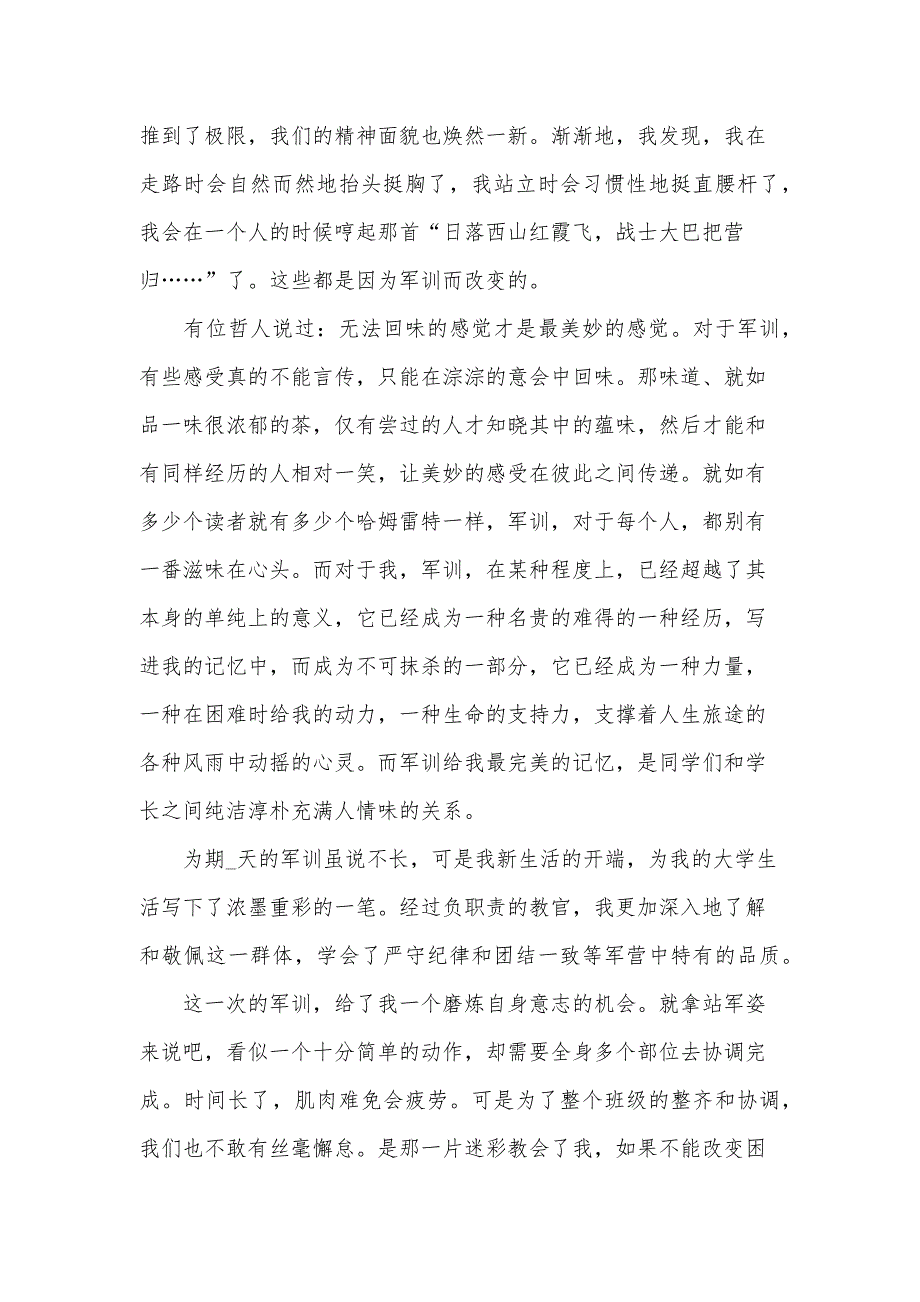 推到了极限，我们的精神面貌也焕然一新。渐渐地，我发现，我在
走路时会自然而然地抬头挺胸了，我站立时会习惯性地挺直腰杆了，
我会在一个人的时候哼起那首“日落西山红霞飞，战士大巴把营
归……”了。这些都是因为军训而改变的。
有位哲人说过：无法回味的感觉才是最美妙的感觉。对于军训，
有些感受真的不能言传，只能在淙淙的意会中回味。那味道、就如
品一味很浓郁的茶，仅有尝过的人才知晓其中的蕴味，然后才能和
有同样经历的人相对一笑，让美妙的感受在彼此之间传递。就如有
多少个读者就有多少个哈姆雷特一样，军训，对于每个人，都别有
一番滋味在心头。而对于我，军训，在某种程度上，已经超越了其
本身的单纯上的意义，它已经成为一种名贵的难得的一种经历，写
进我的记忆中，而成为不可抹杀的一部分，它已经成为一种力量，
一种在困难时给我的动力，一种生命的支持力，支撑着人生旅途的
各种风雨中动摇的心灵。而军训给我最完美的记忆，是同学们和学
长之间纯洁淳朴充满人情味的关系。
为期_天的军训虽说不长，可是我新生活的开端，为我的大学生
活写下了浓墨重彩的一笔。经过负职责的教官，我更加深入地了解
和敬佩这一群体，学会了严守纪律和团结一致等军营中特有的品质。
这一次的军训，给了我一个磨炼自身意志的机会。就拿站军姿
来说吧，看似一个十分简单的动作，却需要全身多个部位去协调完
成。时间长了，肌肉难免会疲劳。可是为了整个班级的整齐和协调，
我们也不敢有丝毫懈怠。是那一片迷彩教会了我，如果不能改变困